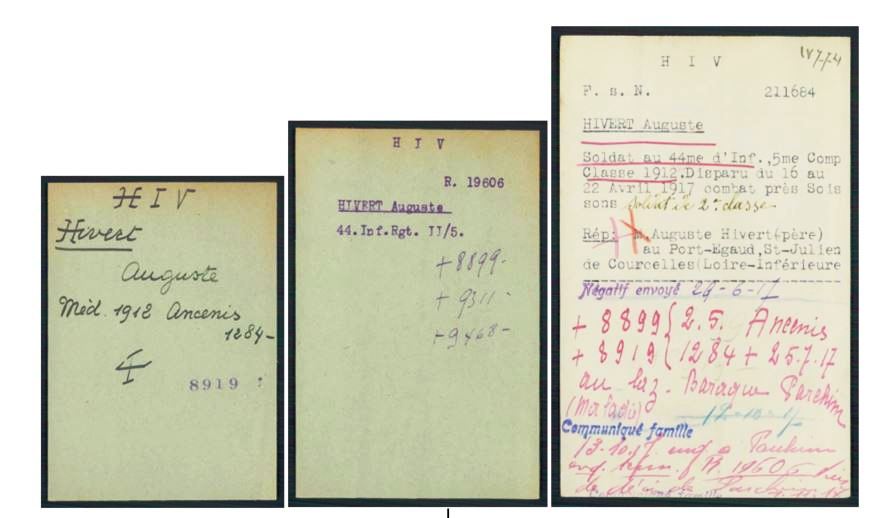 H I V
Hivert
Auguste
Méd. 1912 Ancenis
1284-
8919
H I V
R. 19606
HIVERT Auguste
44.Inf.Rgt. II/5.
+8899-
+9311-
+9468-
H I V
F. s. N. 211684
HIVERT Auguste
Soldat au 44me d'Inf.,5me Comp
Classe 1912.Disparu du 16 au
22 Avril 1917 combat près Sois
sons soldat de 2e classe-
Rép: M.Auguste Hivert(père)
au Port-Egaud,St-Julien
de Courcelles(Loire-Inférieure
Négatif envoyé 29-6-17
+ 8899 { 2.5. Ancenis
+ 8919 { 1284 + 25.7.17
au laz. Baraque Parchim
(Maladie)
Communiqué famille
13.10.17 Parchim
R. 19606